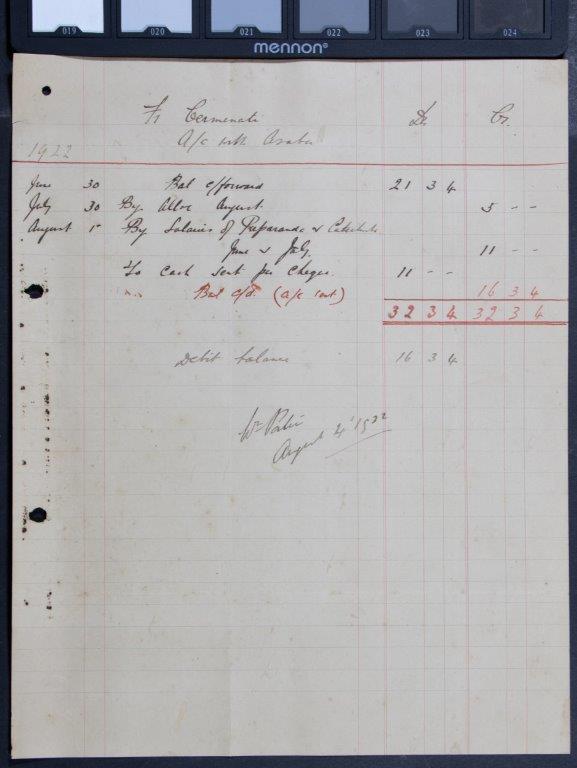 019 020 021 022 023 024
mennon®
Fr Cermenati Dr Cr.
A/c with Asaba
1922
June 30 Bal c/forward 21 3 4
July 30 By Alloc August 5 - -
August 1 By Salaries of Preparanda & Catechists
June & July. 11 - -
To Cash sent per Cheque. 11 - -
Bal c/d. (A/c sent) 16 3 4
32 3 4 32 3 4
Debit balance 16 3 4
August 4' 1922